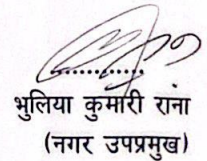 भुलिया कुमारी राना
(नगर उपप्रमुख)